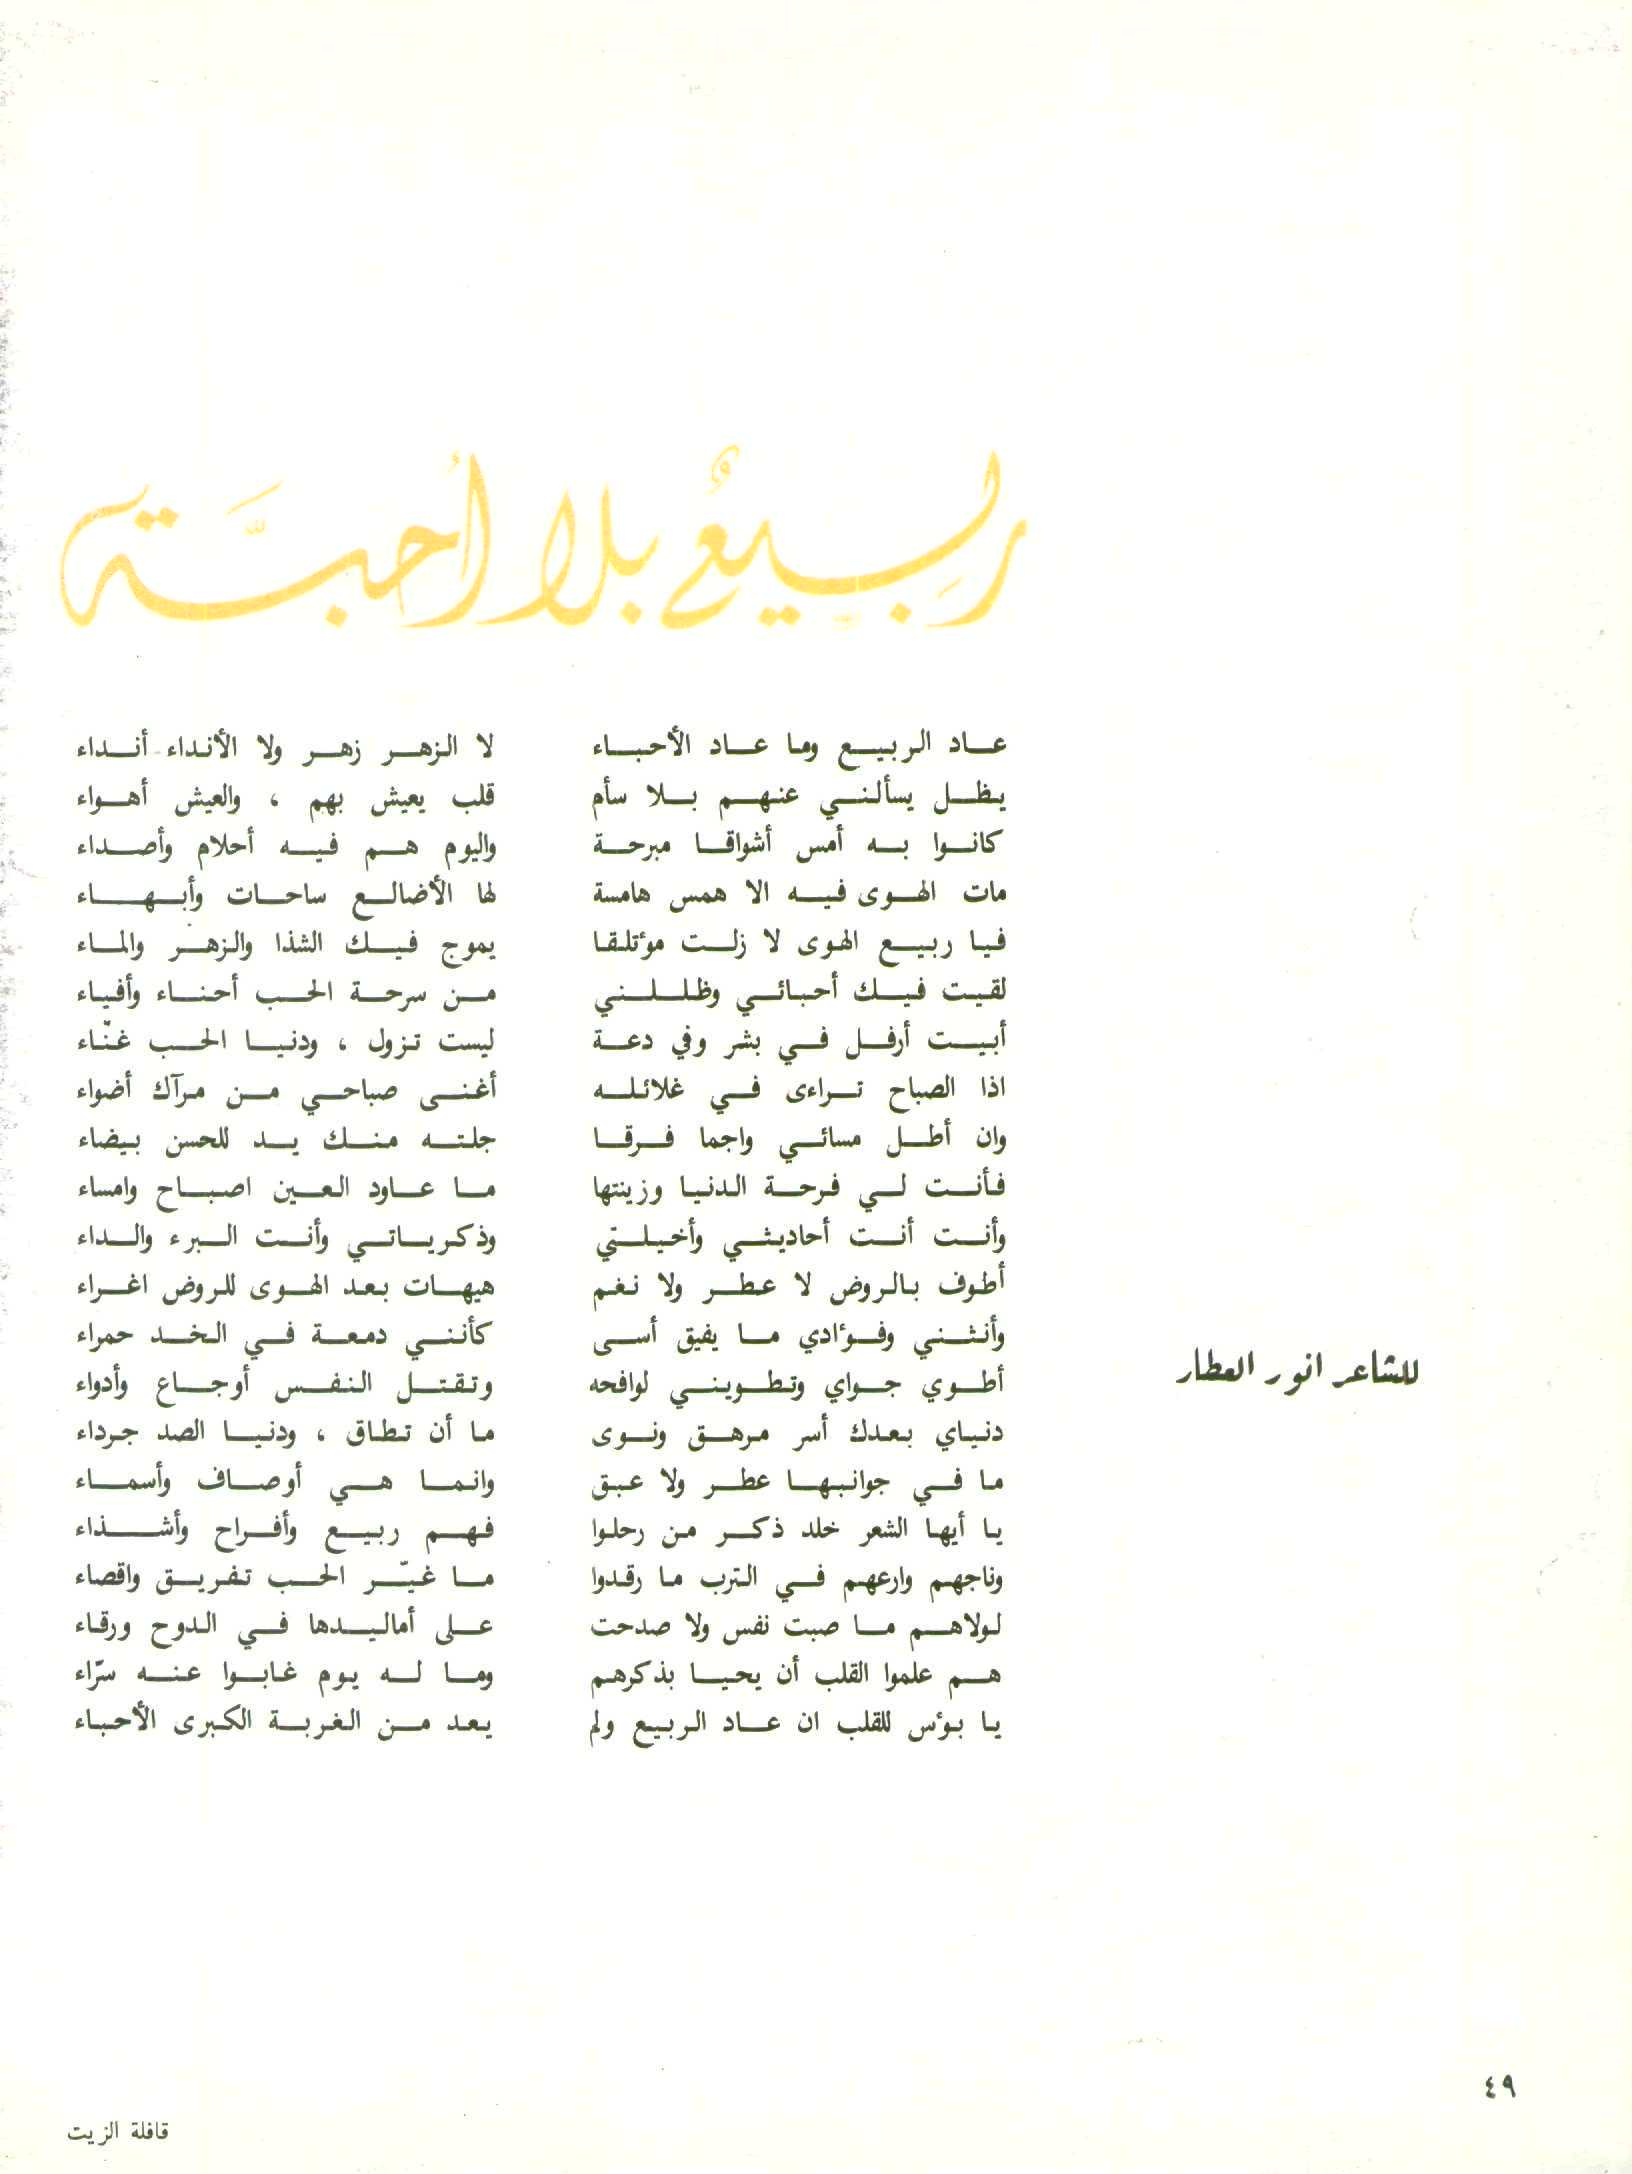 ربيعٌ بلا أحبَّة
عاد الربيع وما عاد الأحباء لا الزهر زهر ولا الأنداء أنداء
يظل يسألني عنهم بلا سأم قلب يعيش بهم ، والعيش أهواء
كانوا به أمس أشواقا مبرحة واليوم هم فيه أحلام وأصداء
مات الهوى فيه الا همس هامسة لها الأضالع ساحات وأبهاء
فيا ربيع الهوى لا زلت مؤتلقا يموج فيك الشذا والزهر والماء
لقيت فيك أحبائي وظللني من سرحة الحب أحناء وأفياء
أبيت أرفل في بشر وفي دعة ليست تزول ، ودنيا الحب غنّاء
اذا الصباح تراءى في غلائله أغنى صباحي من مرآك أضواء
وان أطل مسائي واجما فرقا جلته منك يد للحسن بيضاء
فأنت لي فرحة الدنيا وزينتها ما عاود العين اصباح وامساء
وأنت أنت أحاديثي وأخيلتي وذكرياتي وأنت البرء والداء
أطوف بالروض لا عطر ولا نغم هيهات بعد الهوى للروض اغراء
وأنثني وفؤادي ما يفيق أسى كأنني دمعة في الخد حمراء
أطوي جواي وتطويني لوافحه وتقتل النفس أوجاع وأدواء
دنياي بعدك أسر مرهق ونوى ما أن تطاق ، ودنيا الصد جرداء
ما في جوانبها عطر ولا عبق وانما هي أوصاف وأسماء
يا أيها الشعر خلد ذكر من رحلوا فهم ربيع وأفراح وأشذاء
وناجهم وارعهم في الترب ما رقدوا ما غيّر الحب تفريق واقصاء
لولاهم ما صبت نفس ولا صدحت على أماليدها في الدوح ورقاء
هم علموا القلب أن يحيا بذكرهم وما له يوم غابوا عنه سرّاء
يا بؤس للقلب ان عاد الربيع ولم يعد من الغربة الكبرى الأحباء
للشاعر انور العطار
٤٩
قافلة الزيت